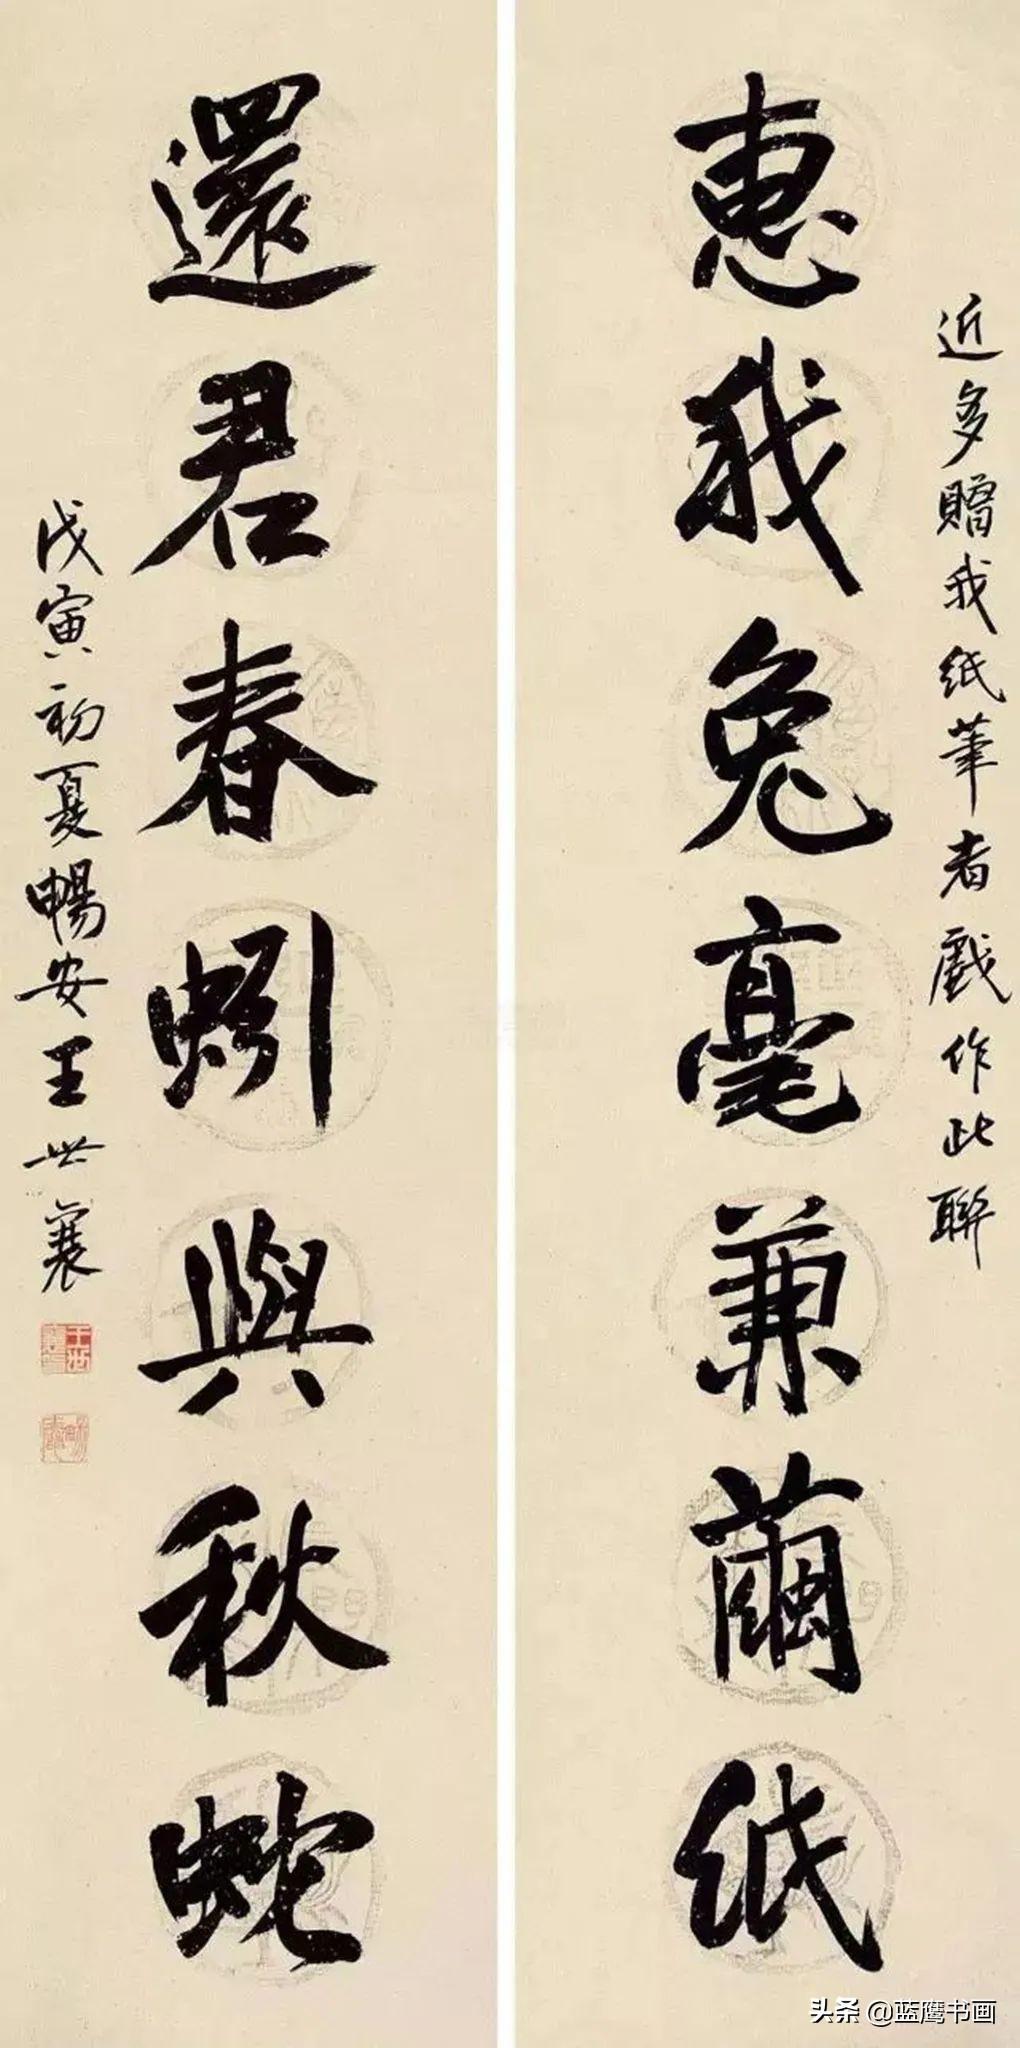 近多贈我紙筆者戲作此聯
惠我兔毫兼繭紙
還君春蚓與秋蛇
戊寅初夏暢安王世襄
王世襄
頭条 @蓝鹰书画